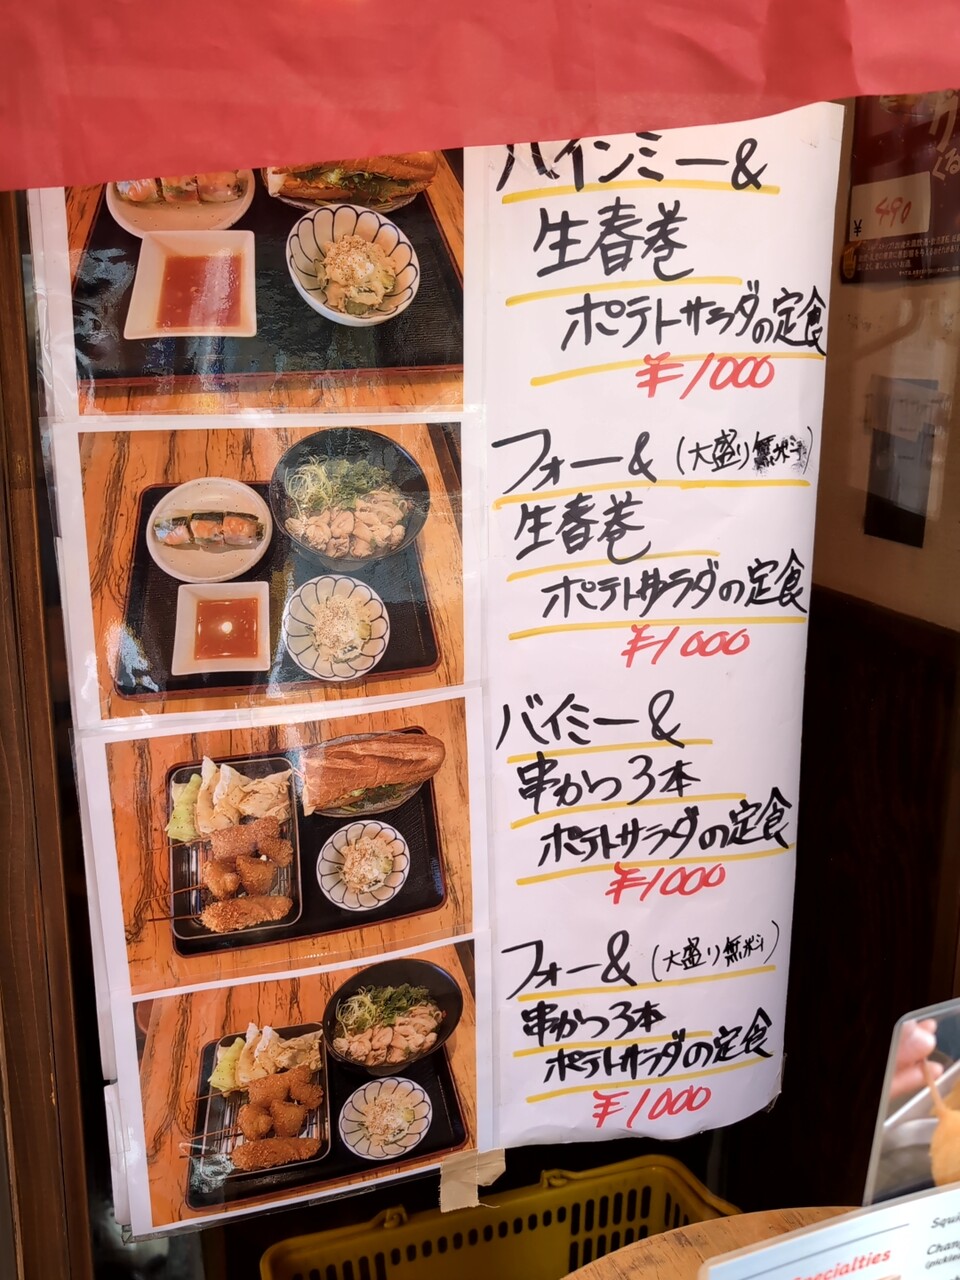 バインミー&
生春巻
ポテトサラダの定食
¥1000
フォー& (大盛り無料)
生春巻
ポテトサラダの定食
¥1000
バイミー&
串かつ3本
ポテトサラダの定食
¥1000
フォー& (大盛り無料)
串かつ3本
ポテトサラダの定食
¥1000
¥ 490
Specialties